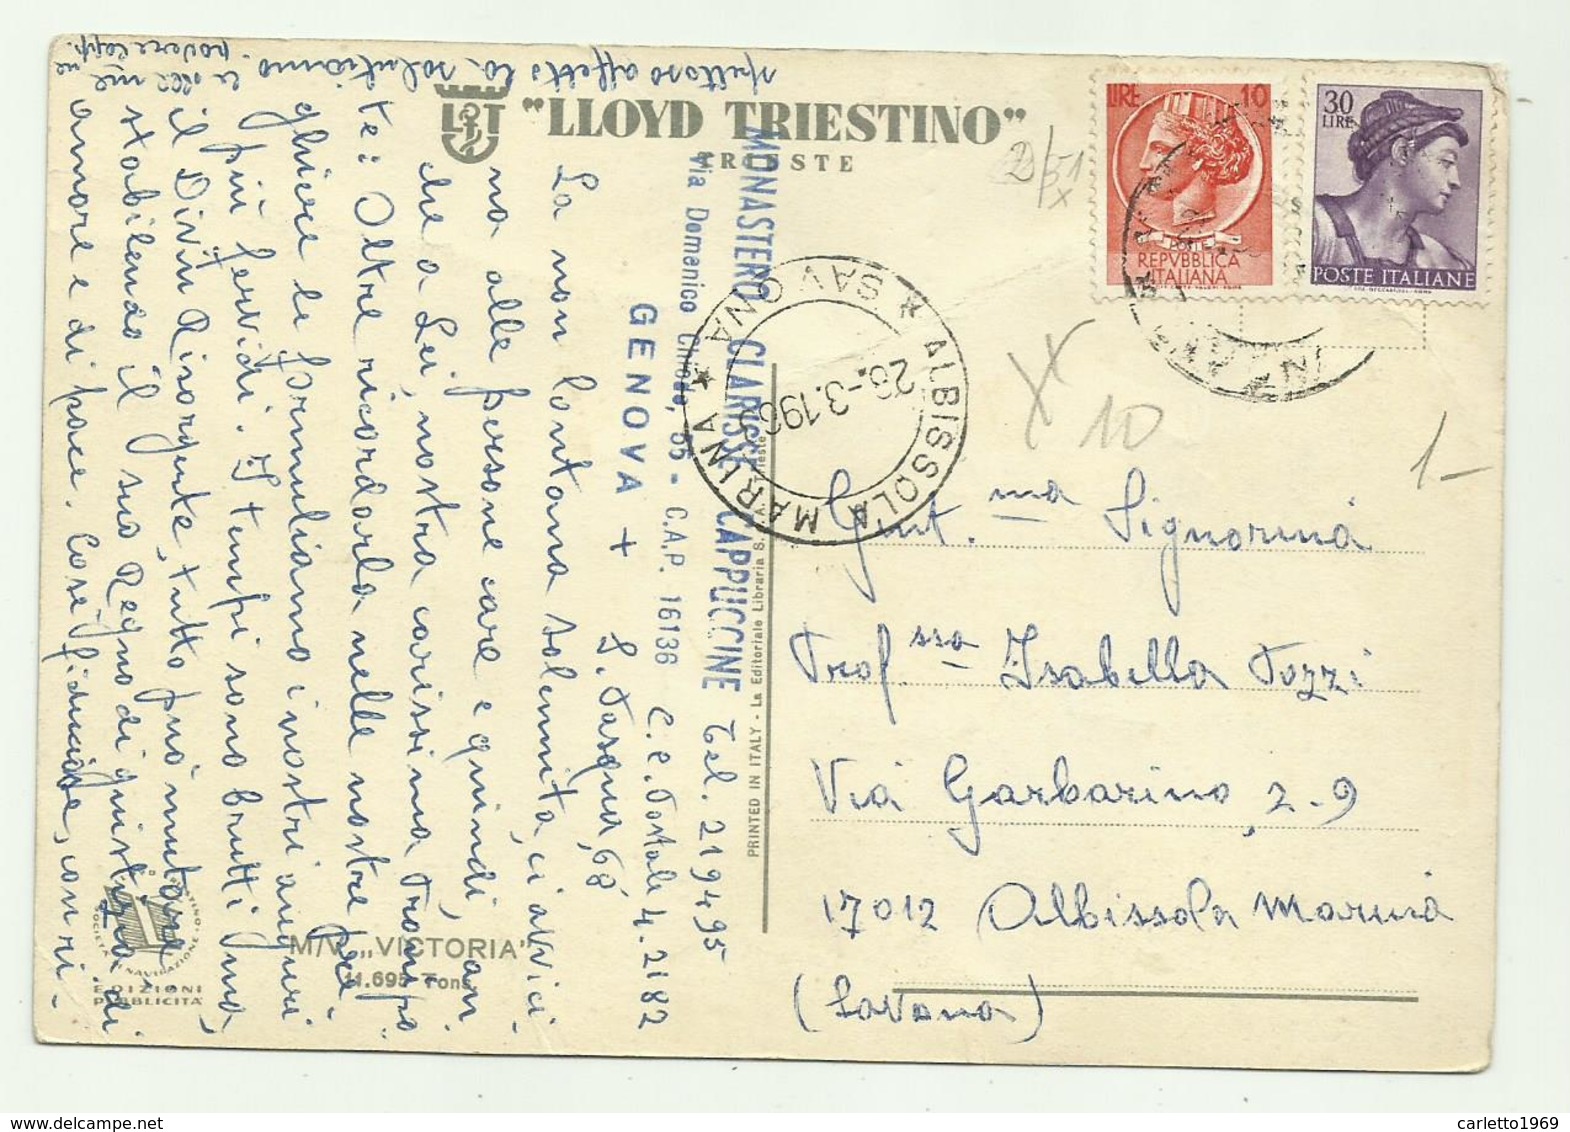 "LLOYD TRIESTINO"
TRIESTE
MONASTERO CLARISSE CAPPUCCINE Tel. 219495
Via Domenico Chiodo, 55 - C.A.P. 16136 C.C. Postale 4.2182
GENOVA + S. Pasqua, 68
La non lontana solennità, ci avvici-
na alle persone care e quindi, an
che a Lei, nostra carissima Troppo
te: Oltre ricordarla nelle nostre pre-
ghiere le formuliamo i nostri auguri
più fervidi. I tempi sono brutti ma,
il Divin Risorgente, tutto può mutare,
stabilendo il suo Regno di giustizia, di
amore e di pace. Così, fiduciose, con ri-
spettoso affetto la salutiamo.
povere capp.
M/V. „VICTORIA"
11.695 Tonn.
EDIZIONI
PUBBLICITÀ
SOCIETÀ NAVIGAZIONE
PRINTED IN ITALY - La Editoriale Libraria S. A. Trieste
LIRE 10
POSTE
REPVBBLICA
ITALIANA
30
LIRE
POSTE ITALIANE
ALBISSOLA MARINA
SAVONA
26.-3.196
10
1-
Gent.ma Signorina
Prof.ssa Isabella Pozzi
Via Garbarino, 2-9
17012 Albissola Marina
(Savona)
carletto1969